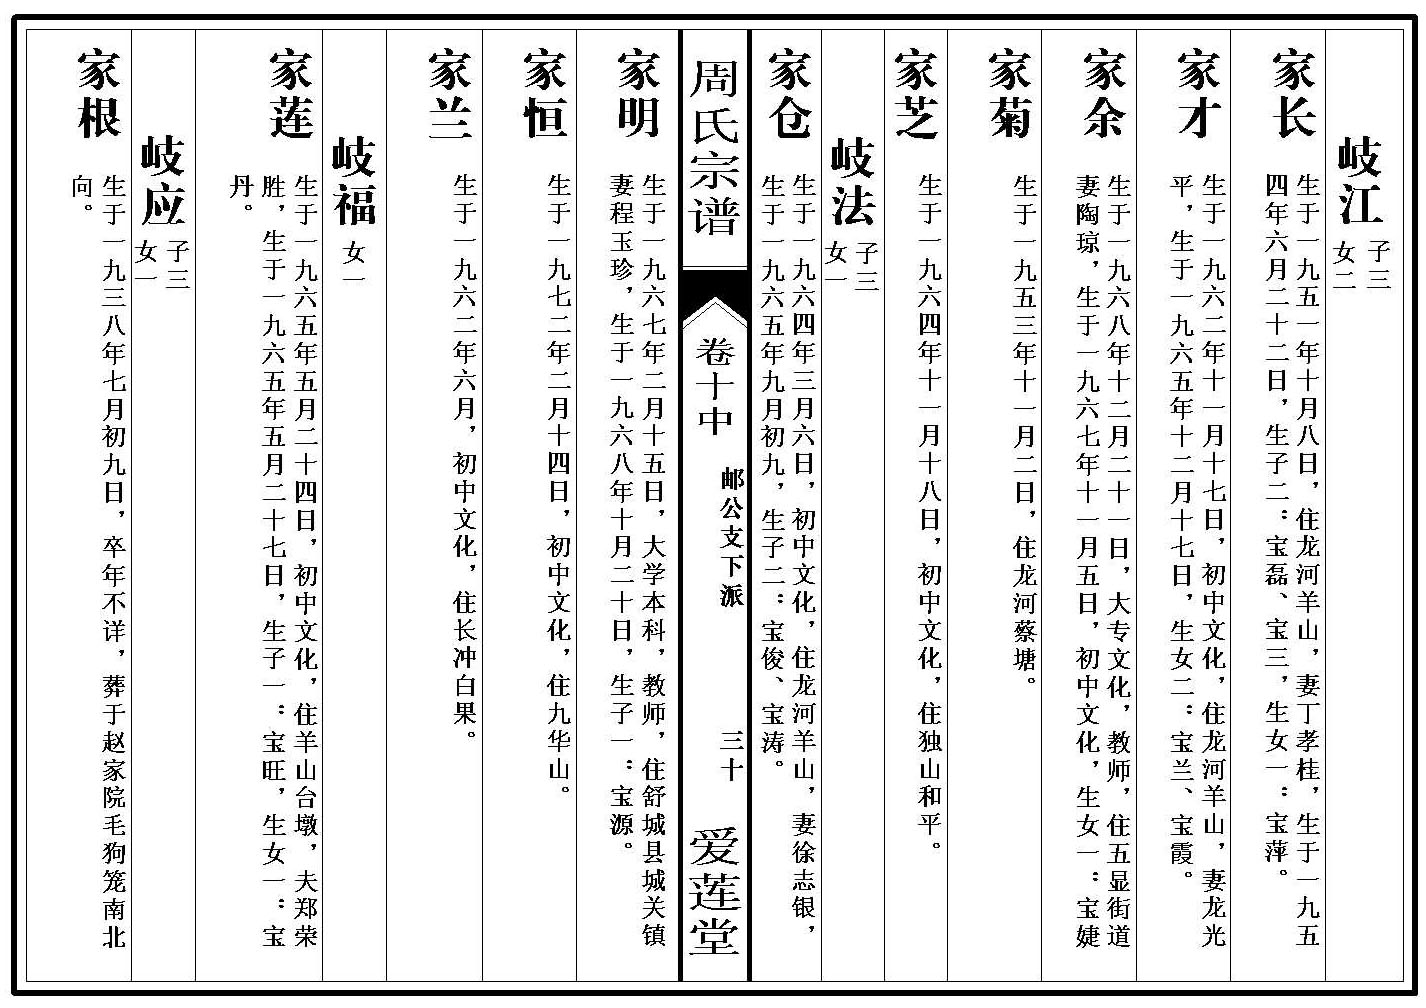 岐江
子三
女二
家长
生于一九五一年十月八日，住龙河羊山，妻丁孝桂，生于一九五
四年六月二十二日，生子二：宝磊、宝三，生女一：宝萍。
家才
生于一九六二年十一月十七日，初中文化，住龙河羊山，妻龙光
平，生于一九六五年十二月十七日，生女二：宝兰、宝霞。
家余
生于一九六八年十二月二十一日，大专文化，教师，住五显街道
妻陶琼，生于一九六七年十一月五日，初中文化，生女一：宝婕
家菊
生于一九五三年十一月二日，住龙河蔡塘。
家芝
生于一九六四年十一月十八日，初中文化，住独山和平。
岐法
子三
女一
家仓
生于一九六四年三月六日，初中文化，住龙河羊山，妻徐志银，
生于一九六五年九月初九，生子二：宝俊、宝涛。
周氏宗谱
卷十中
邮公支下派
三十
爱莲堂
家明
生于一九六七年二月十五日，大学本科，教师，住舒城县城关镇
妻程玉珍，生于一九六八年十月二十日，生子一：宝源。
家恒
生于一九七二年二月十四日，初中文化，住九华山。
家兰
生于一九六二年六月，初中文化，住长冲白果。
岐福
女一
家莲
生于一九六五年五月二十四日，初中文化，住羊山台墩，夫郑荣
胜，生于一九六五年五月二十七日，生子一：宝旺，生女一：宝
丹。
岐应
子三
女一
家根
生于一九三八年七月初九日，卒年不详，葬于赵家院毛狗笼南北
向。